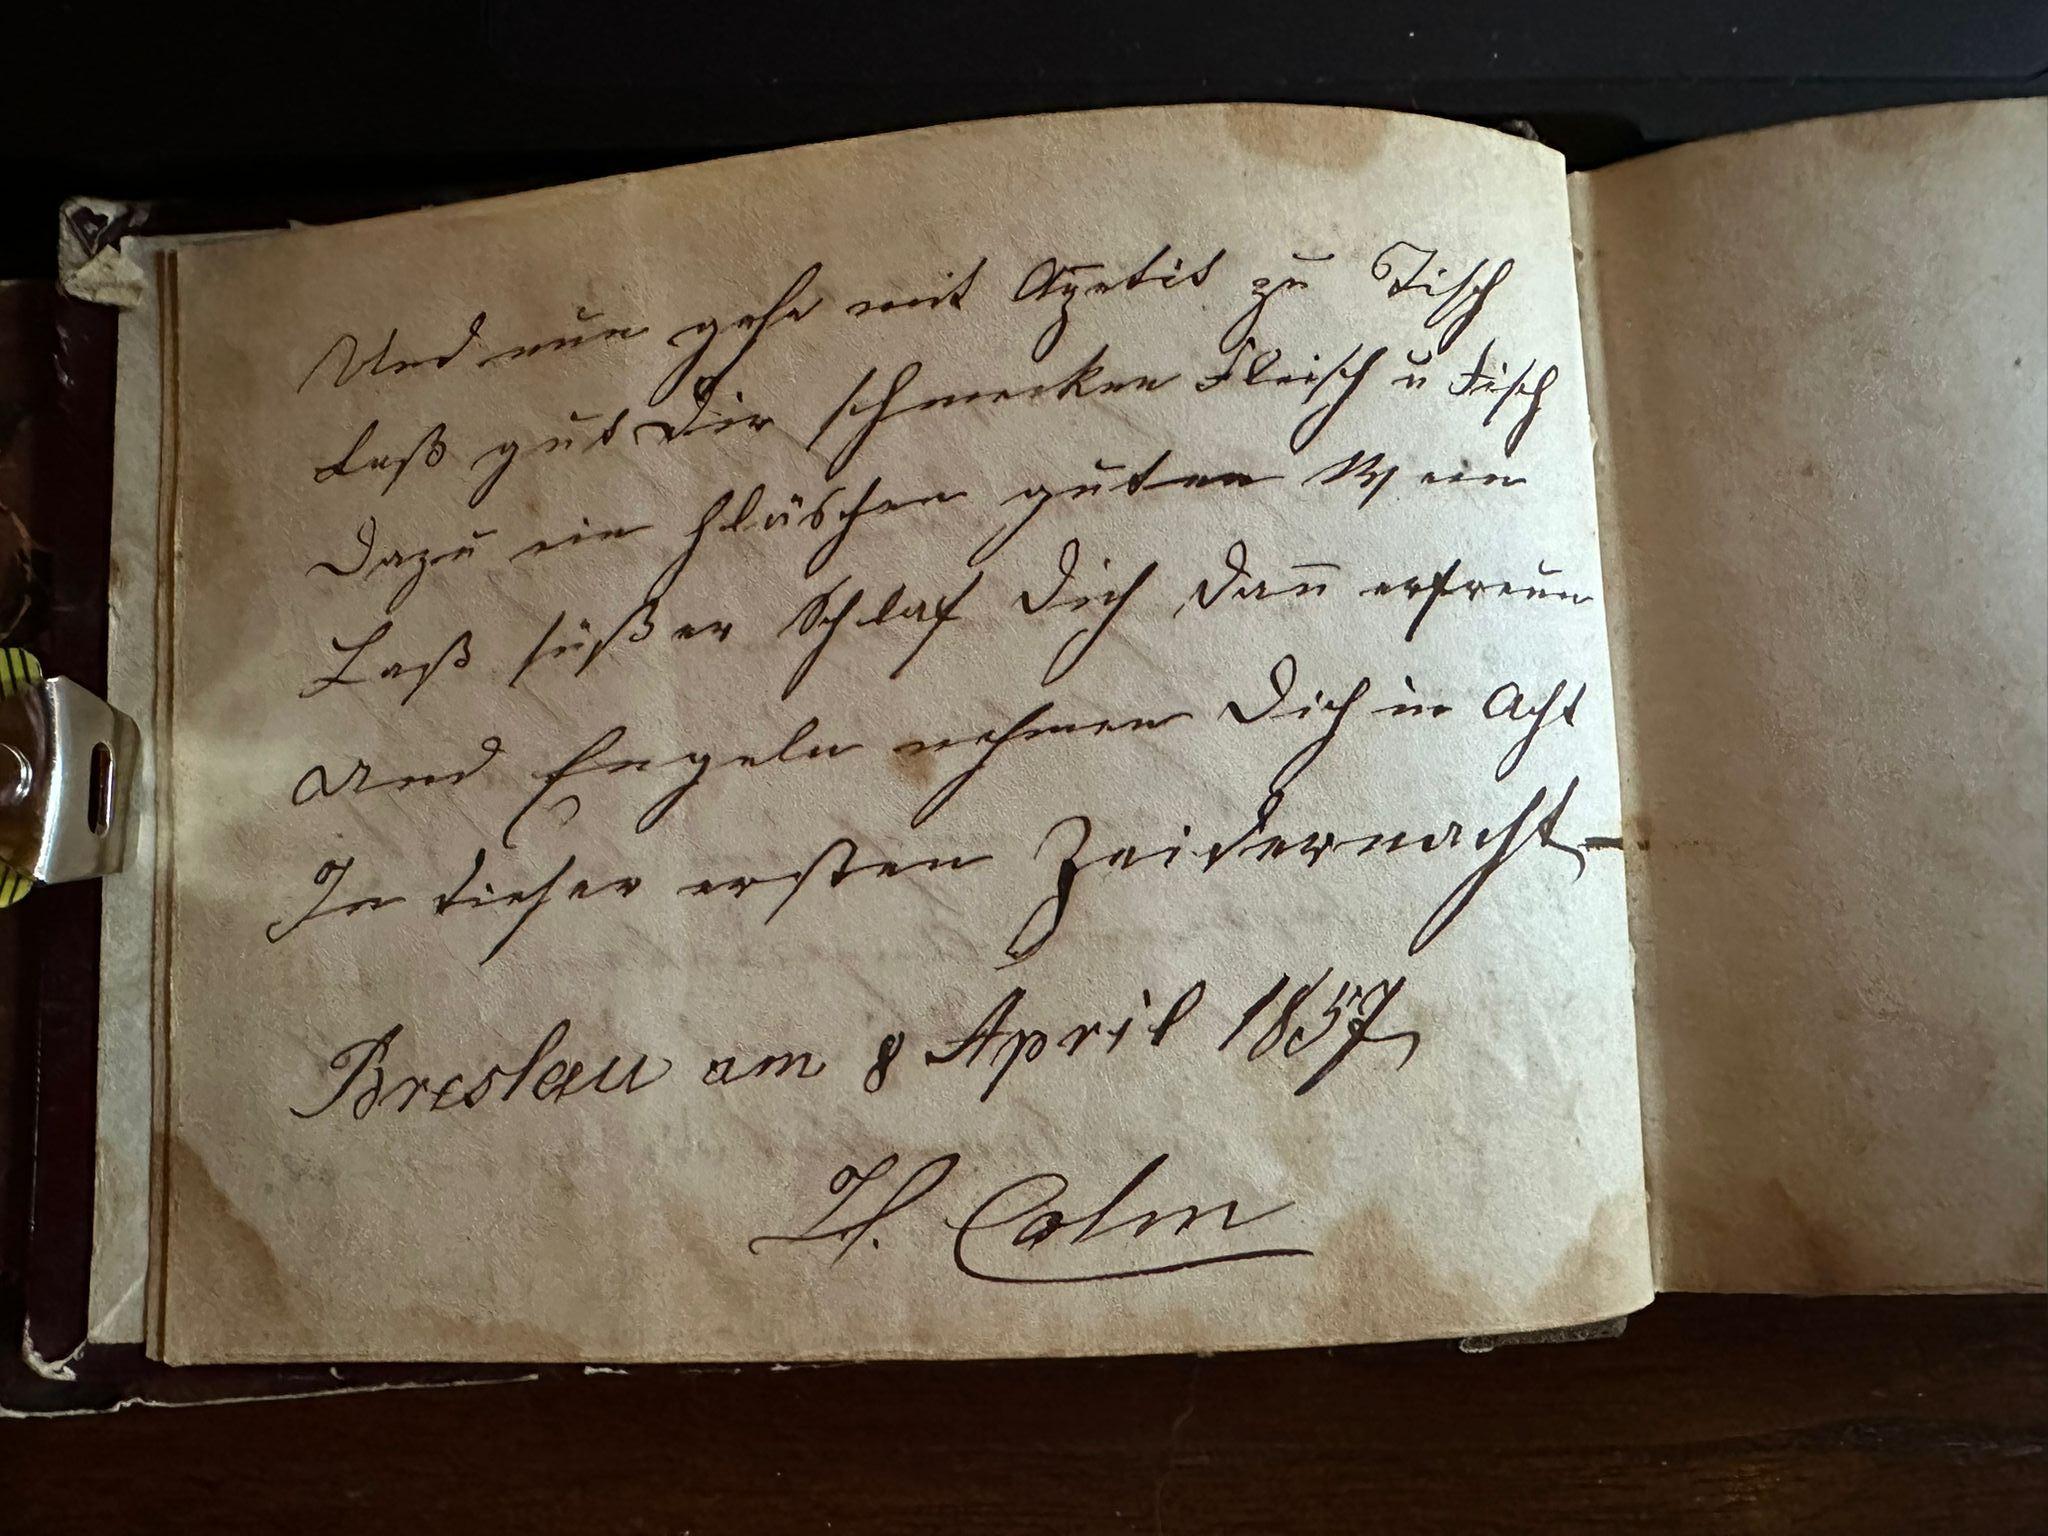 Und nun gehe mit Ap̅etit zu Tisch
Laß gut Dir schmecken Fleisch u Fisch
Dazu ein Fläschen guten Wein
Laß süßer Schlaf Dich dan̅ erfreun
Und Engeln nehmen Dich in Acht
In dieser ersten Zeidernacht
Breslau am 8 April 1857
Th. Colm